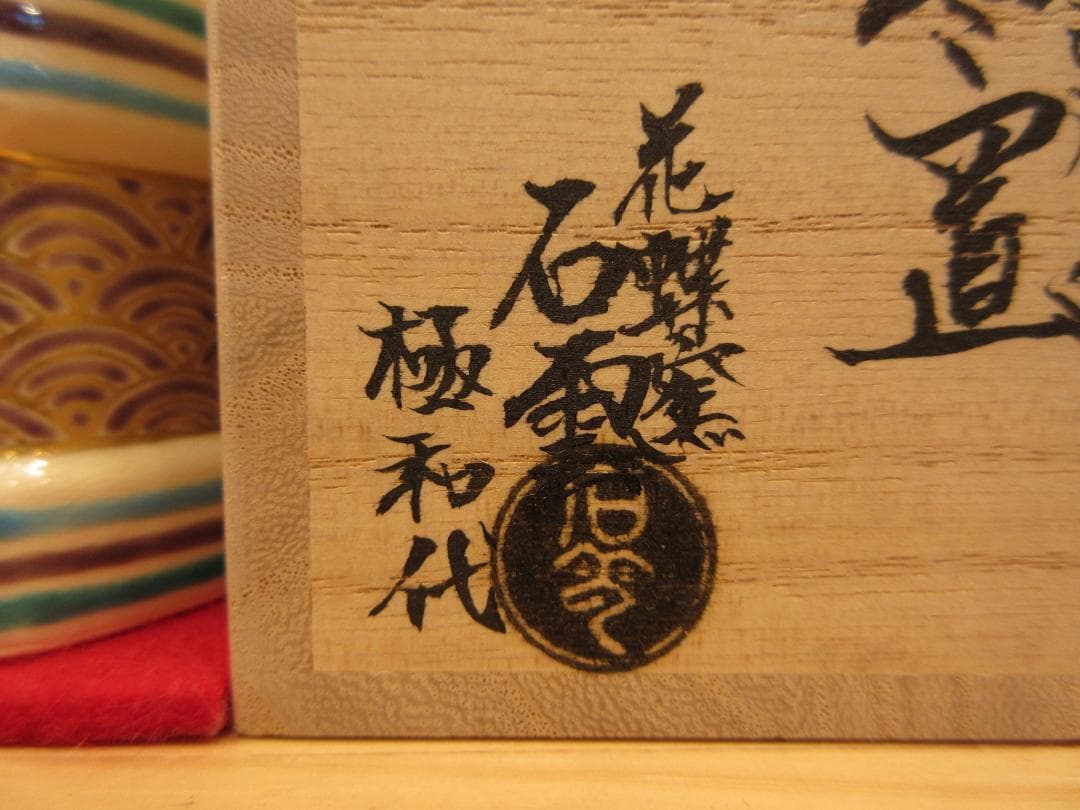 置
花蝶窯
石雲
極和代
石雲